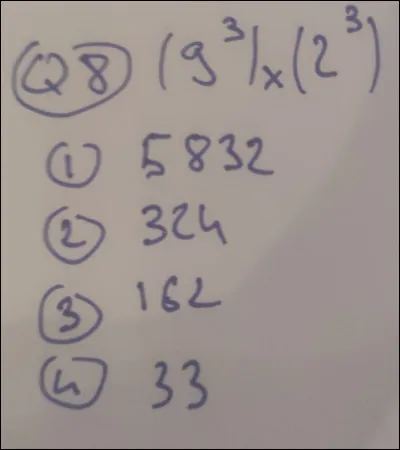 Q8 (9³)x(2³)
1 5832
2 324
3 162
4 33